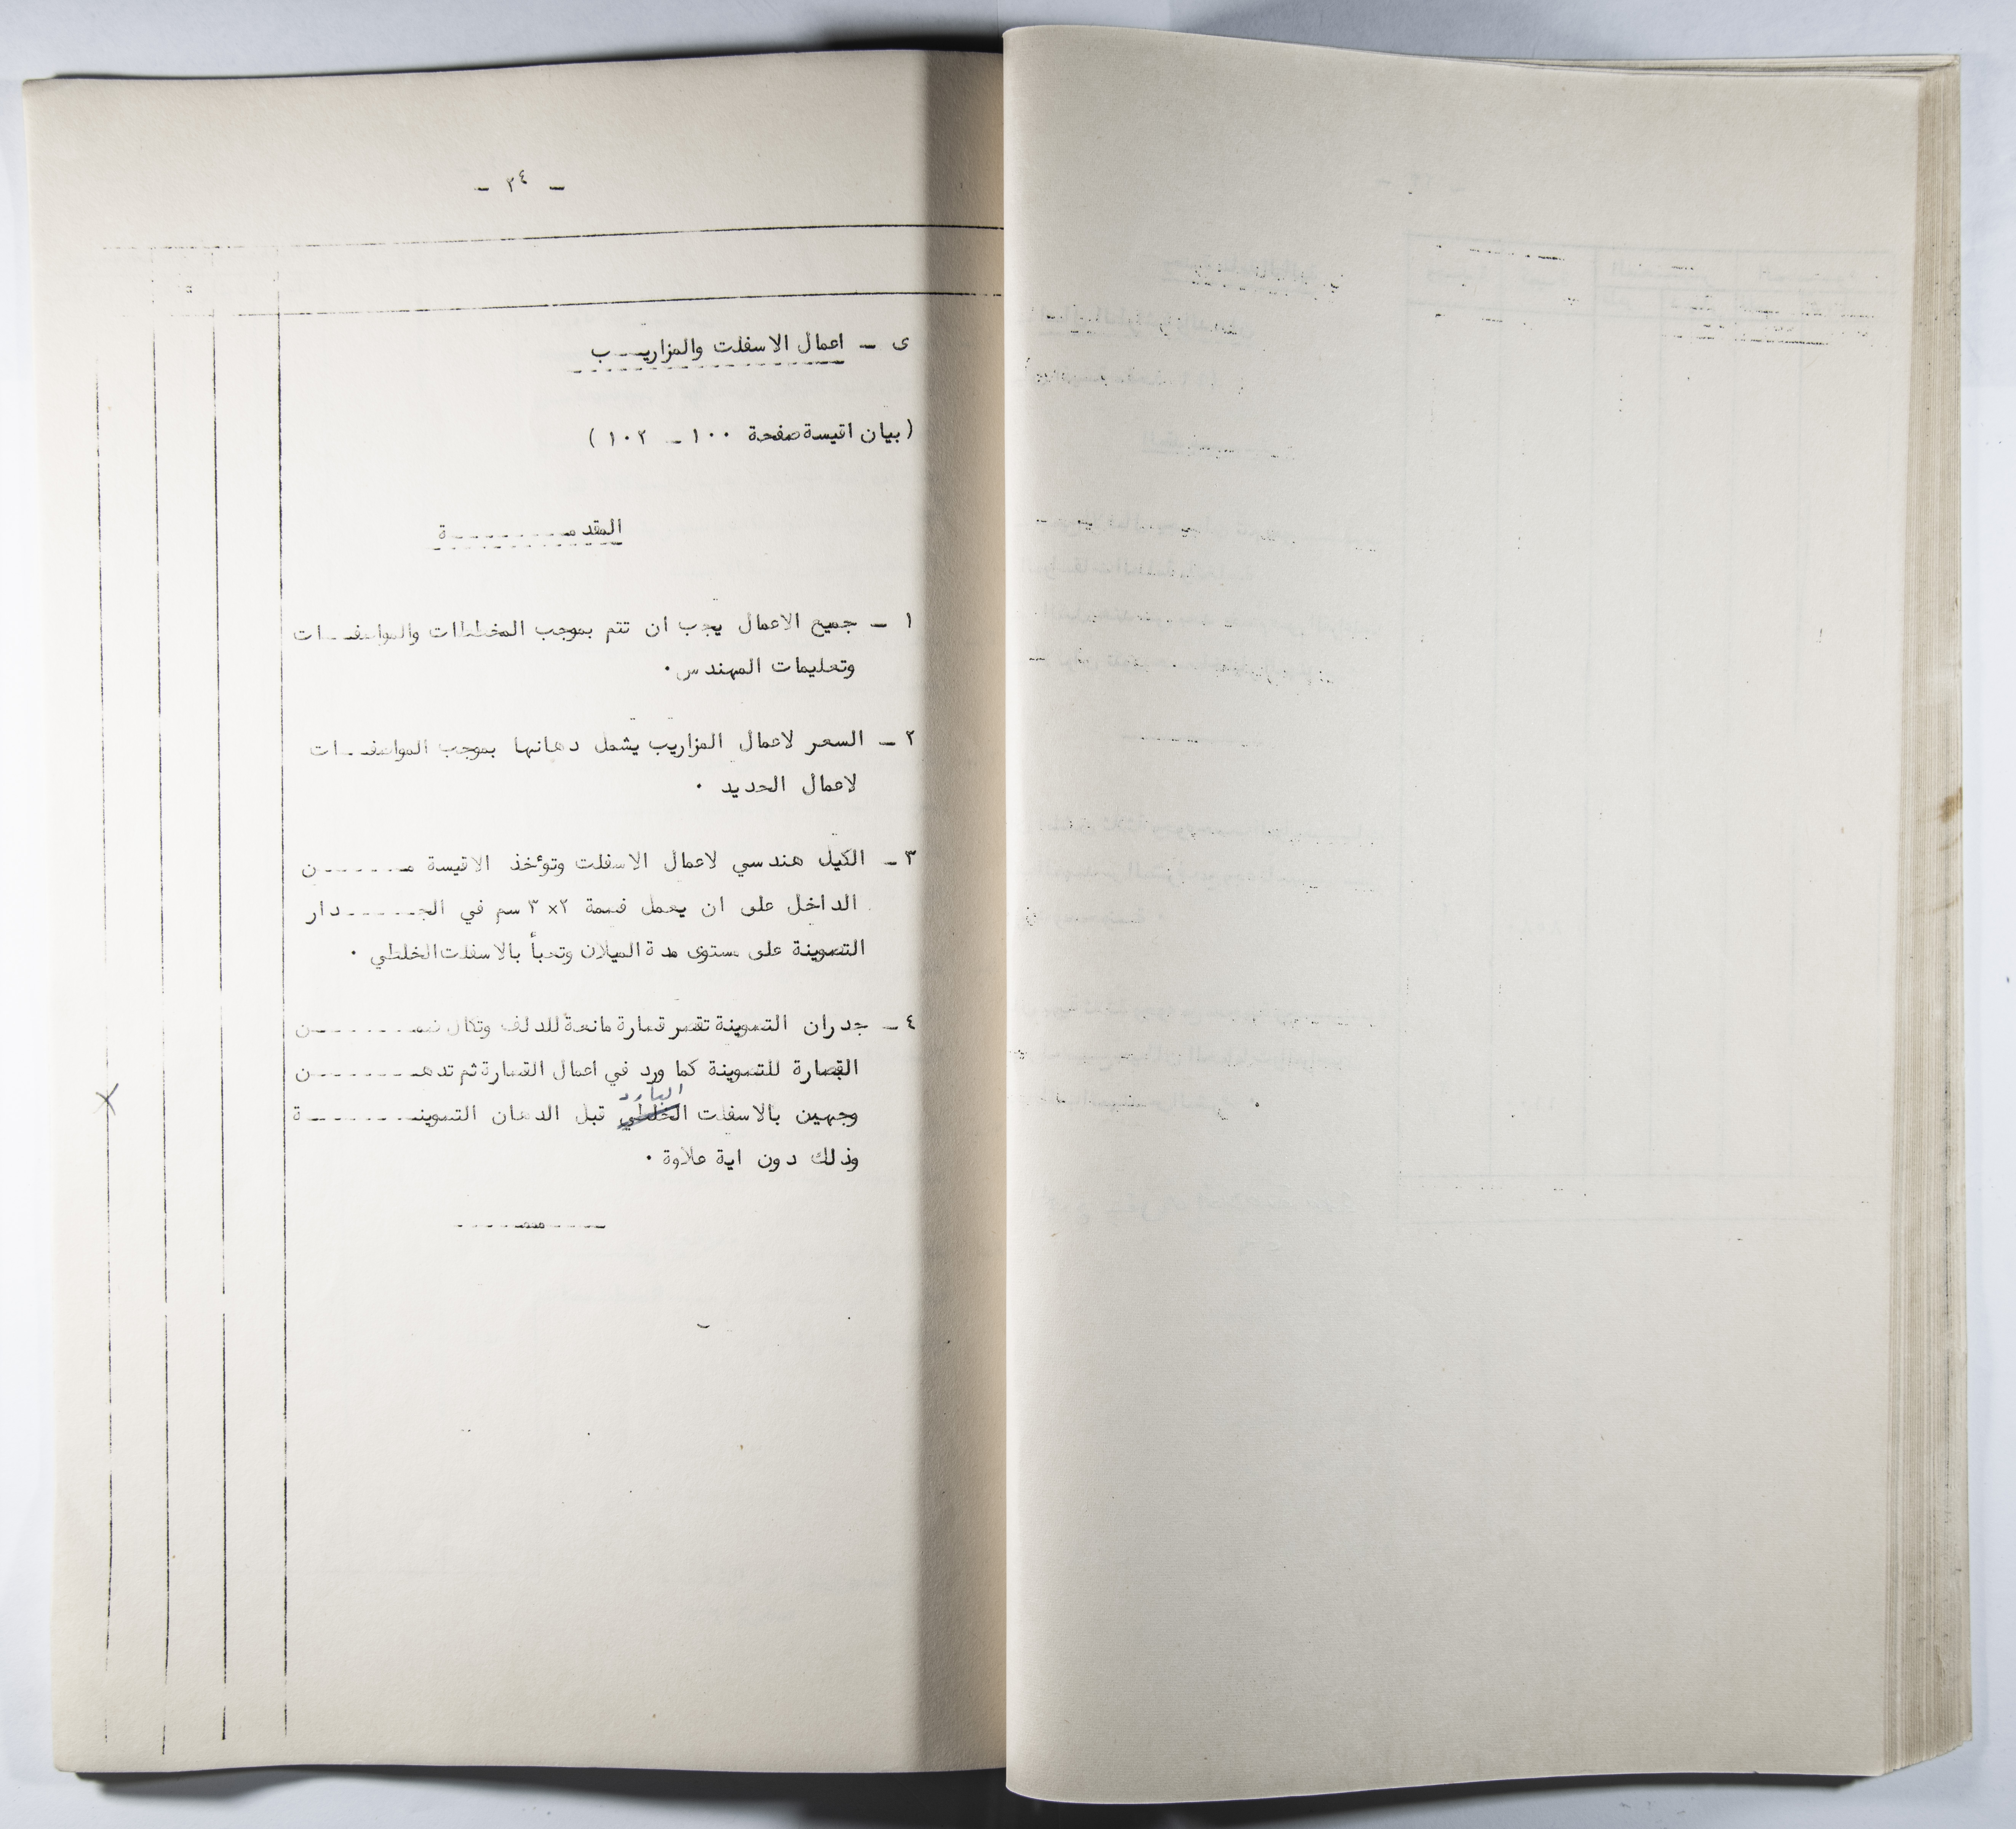 - ٣٤ -
ى - اعمال الاسفلت والمزاريب
(بيان اقيسة صفحة ١٠٠ - ١٠٢)
المقدمة
١ - جميع الاعمال يجب ان تتم بموجب المخططات والمواصفات
وتعليمات المهندس.
٢ - السعر لاعمال المزاريب يشمل دهانها بموجب المواصفات
لاعمال الحديد.
٣ - الكيل هندسي لاعمال الاسفلت وتوئخذ الاقيسة من
الداخل على ان يعمل فسمة ٢×٣ سم في الجدار
التصوينة على مستوى مدة الميلان وتعبأ بالاسفلت الخلطي.
٤ - جدران التصوينة تقصر قصارة مانعة للدلف وتكال ضمن
القصارة للتصوينة كما ورد في اعمال القصارة ثم تدهن
البارد
وجهين بالاسفلت الخلطي قبل الدهان التصوينة
وذلك دون اية علاوة.